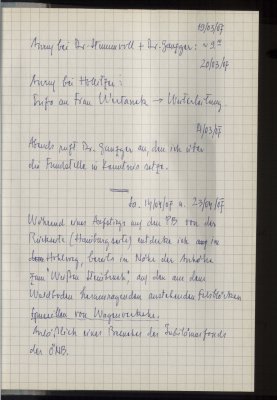 19/03/07
Anruf bei Dr. Stummvoll + Dr. Gangger:
20/03/07
Anruf bei Hollitzer:
Info an Frau → Weiterleitung.
14/03/07
Abends ruft Dr. Gangger an, den ich über
die Fundstelle in Kenntnis setze.
Sa, 14/04/07 u. 23/04/07
Während eines Aufstiegs auf den PB von der
Rückseite (Hainburgseite) entdecke ich
Hohlweg, bereits in Nähe der Anhöhe
zum "Weißen Steinbruch", auf den aus dem
Waldboden herausragenden anstehenden Felsblöcken
von Wagenverkehr.
Anläßlich eines Besuches des Jubiläumsfonds
der ÖNB.